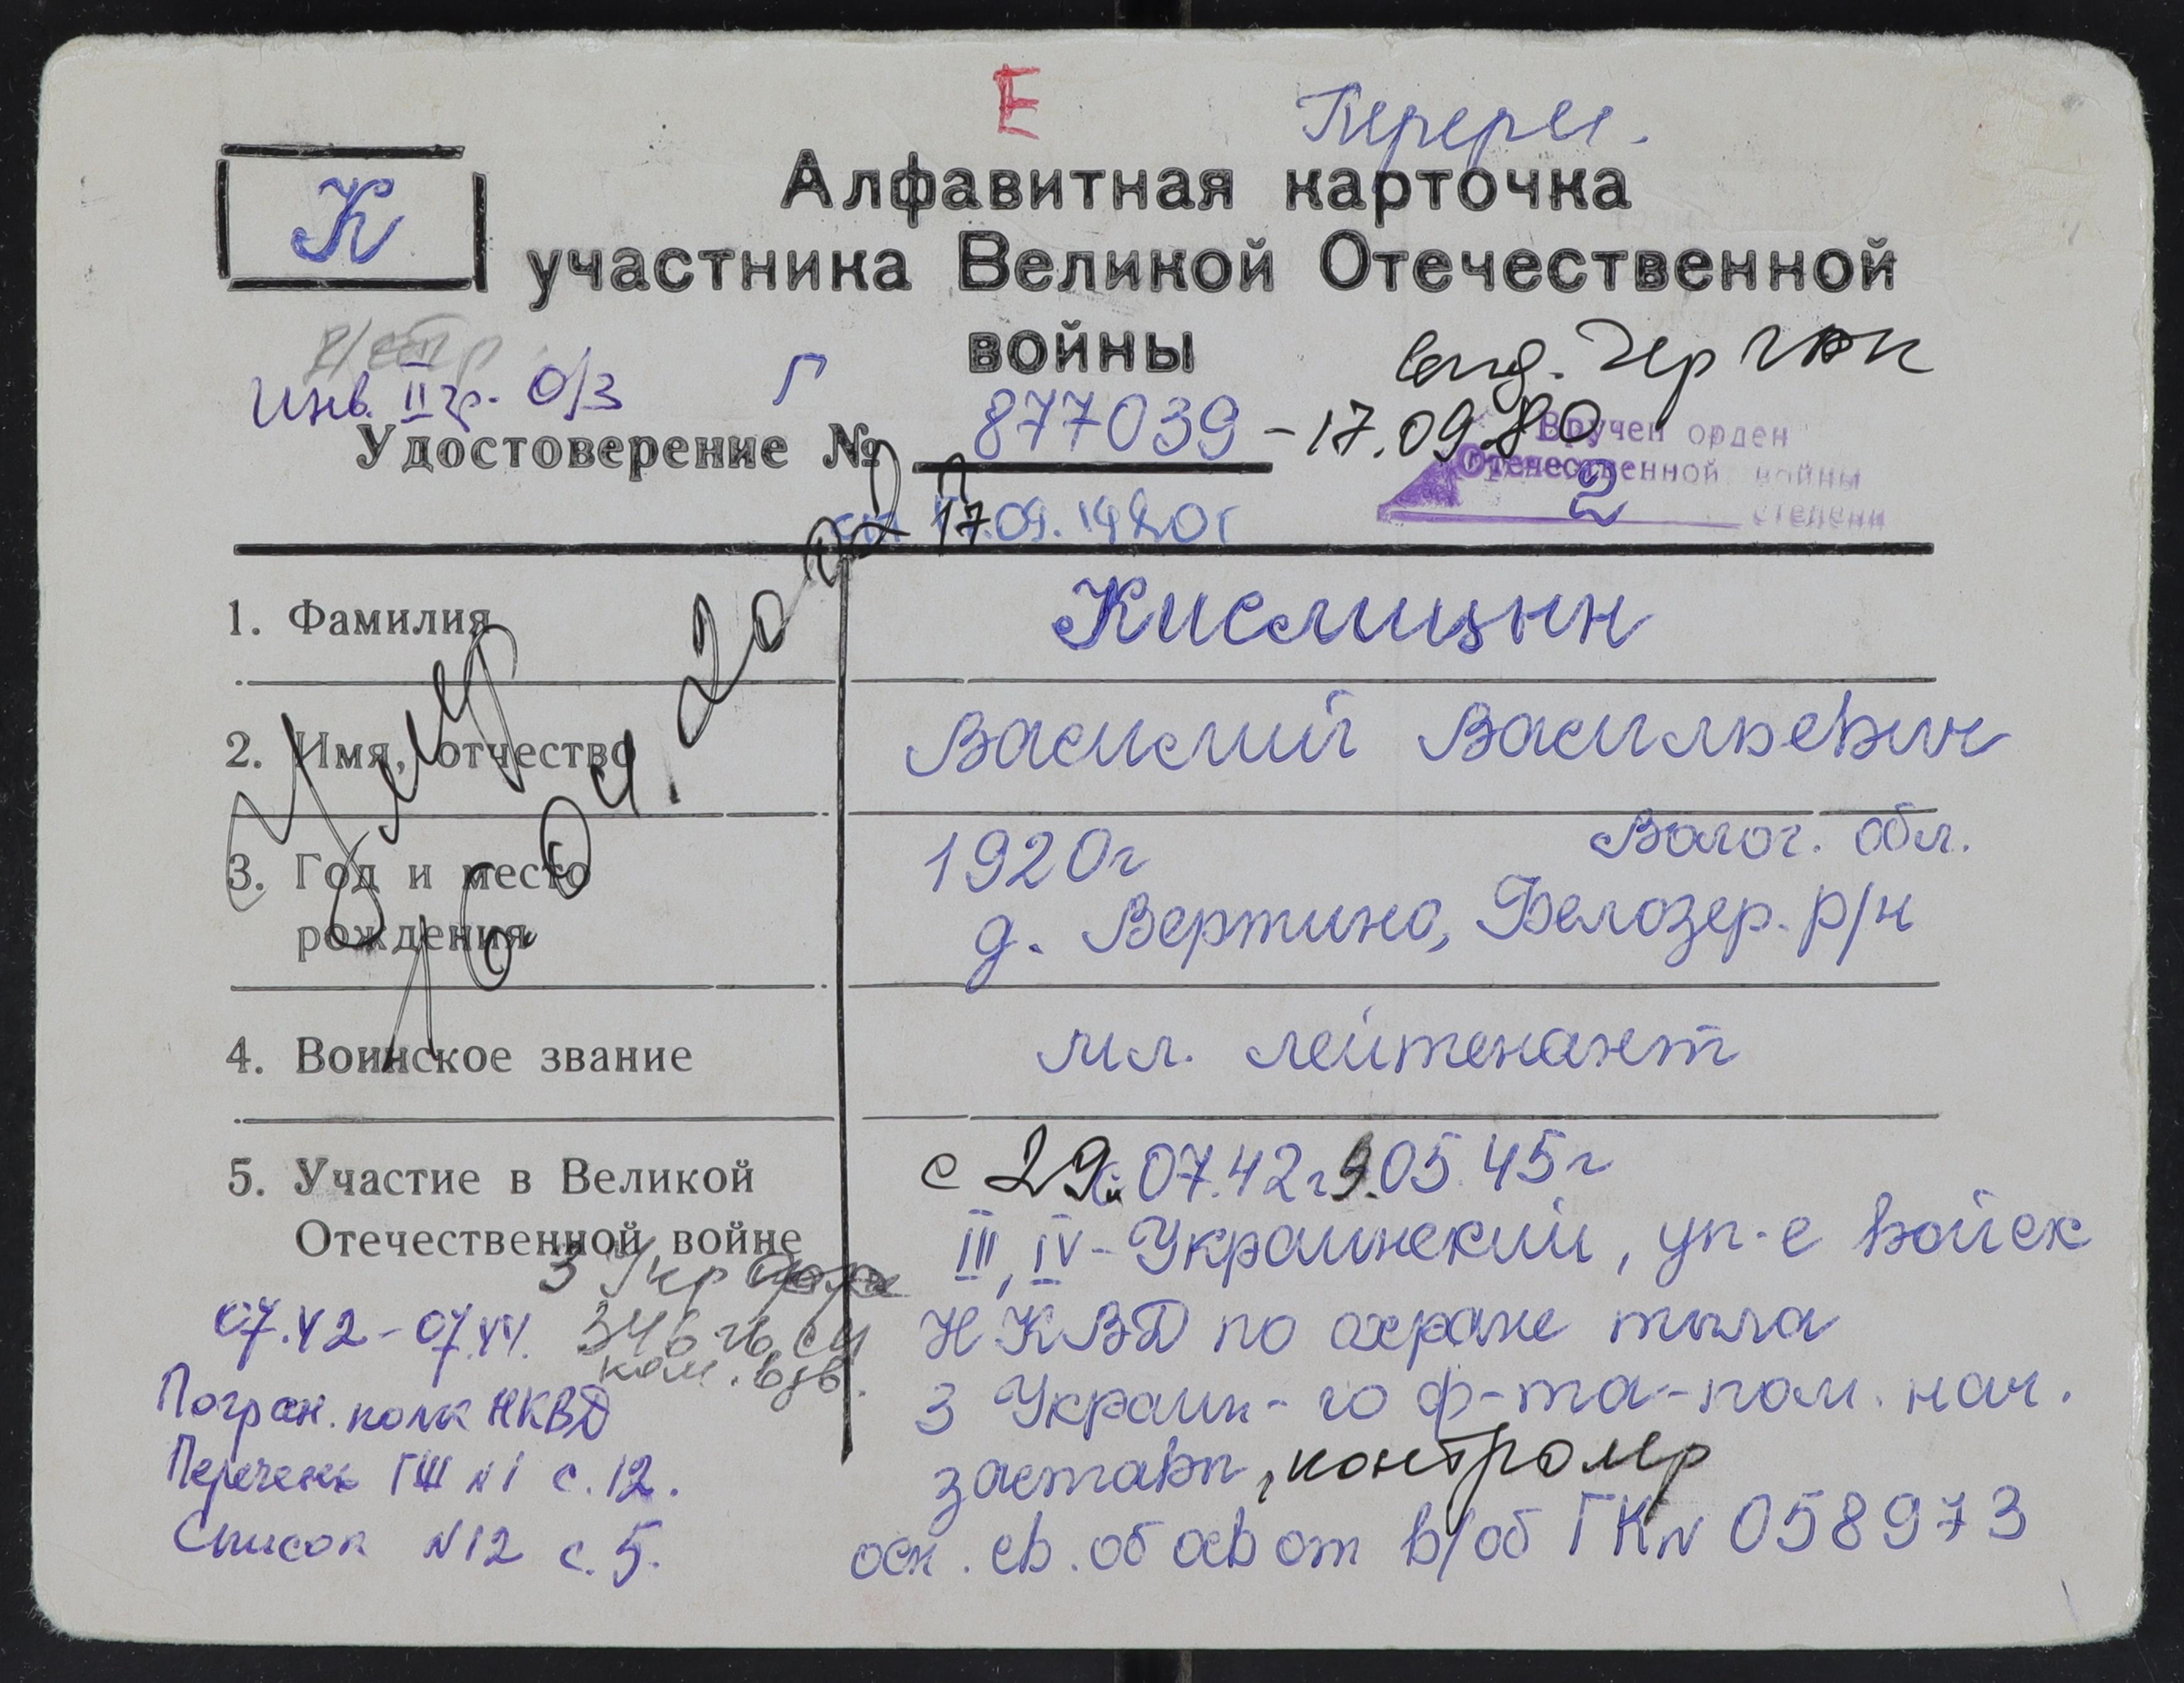 Е
К
Алфавитная карточка
участника Великой Отечественной
войны
Инв. II гр. О/З Г
Удостоверение № 877039 - 17.09.80
Вручен орден
Отечественной войны
2 степени
от 17.09.1980г
1. Фамилия Кислицын
2. Имя, отчество Василий Васильевич
Умер 16.04.2002
3. Год и место рождения 1920г Волог. обл.
д. Вертино, Белозер. р/н
4. Воинское звание мл. лейтенант
5. Участие в Великой
Отечественной войне
с 29.07.42г 9.05.45г
III, IV-Украинский, уп-е войск
НКВД по охране тыла
3 Украин-го ф-та-пом. нач.
заставы, контролер
осн. св. об осв от в/об ГК № 058973
3 Укр
346
ком. взв.
07.42-07.44.
Погран. полк НКВД
Перечень ГШ №1 с. 12.
Список №12 с. 5.